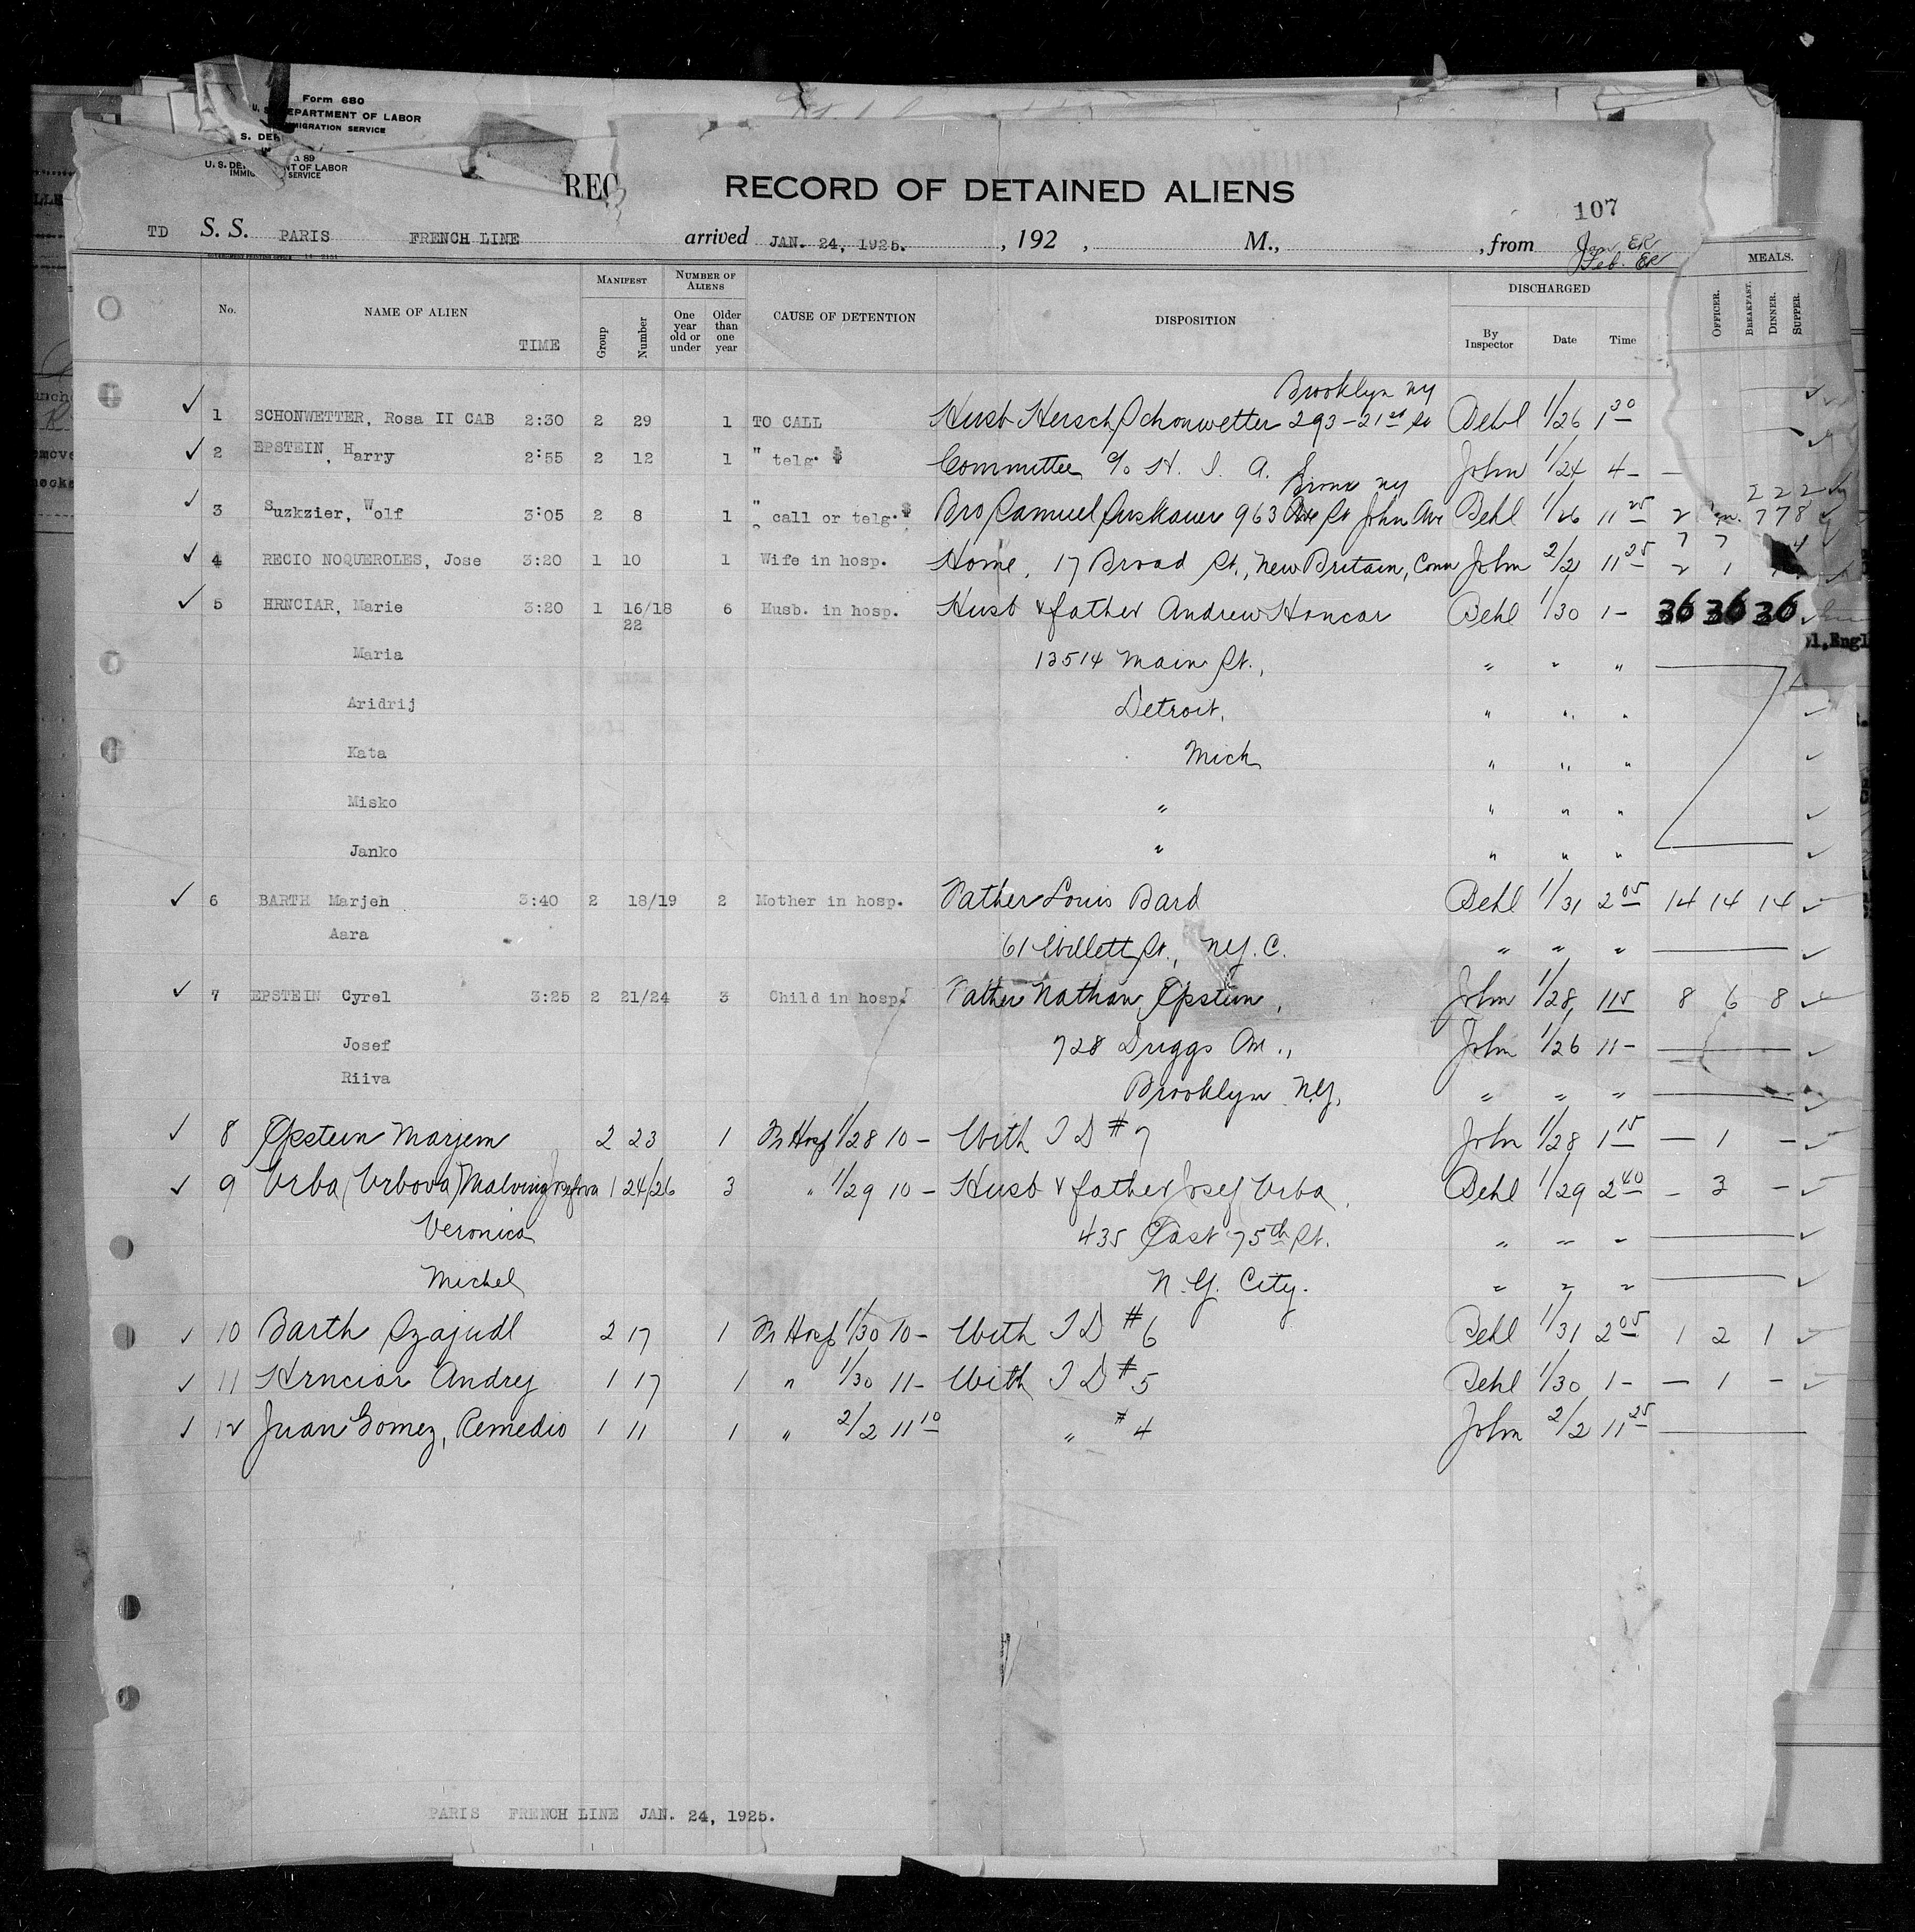 Form 680
U. S. DEPARTMENT OF LABOR
IMMIGRATION SERVICE
S. DE
89
U. S. DE NT OF LABOR
IMMIG SERVICE
REC
RECORD OF DETAINED ALIENS
107
TD S. S. PARIS FRENCH LINE arrived JAN. 24, 1925. , 192 , M., , from Jan. ER
Feb. ER
MEALS.
No. NAME OF ALIEN TIME MANIFEST Group Number NUMBER OF ALIENS One year old or under Older than one year CAUSE OF DETENTION DISPOSITION DISCHARGED By Inspector Date Time OFFICER. BREAKFAST. DINNER. SUPPER.
Brooklyn NY
1 SCHONWETTER, Rosa II CAB 2:30 2 29 1 TO CALL Husb Hersch Schonwetter 293-21st St Behl 1/26 1 30
2 EPSTEIN, Harry 2:55 2 12 1 " telg. $ Committee c/o H. I. A. S. John 1/24 4 -
Bronx NY 2 2 2
3 Suzkzier, Wolf 3:05 2 8 1 " call or telg. $ Bro Samuel 963 St John Ave Behl 1/26 11 25 2 7 7 8
4 RECIO NOQUEROLES, Jose 3:20 1 10 1 Wife in hosp. Home, 17 Broad St., New Britain, Conn John 2/2 11 25 2 1
5 HRNCIAR, Marie 3:20 1 16/18 6 Husb. in hosp. Husb & father Andrew Honcar Behl 1/30 1 - 36 36 36
22
l, Engl
Maria 13514 Main St., " " "
Aridrij Detroit, " " "
Kata Mich " " "
Misko " " " "
Janko " " " "
6 BARTH Marjeh 3:40 2 18/19 2 Mother in hosp. Father Louis Bard Behl 1/31 2 05 14 14 14
Aara 61 Willett St., N.Y. C. " " "
7 EPSTEIN Cyrel 3:25 2 21/24 3 Child in hosp. Father Nathan Epstein, John 1/28 1 15 8 6 8
Josef 728 Driggs Ave., John 1/26 11 -
Riiva Brooklyn N.Y. " " "
8 Epstein Marjem 2 23 1 Fr Hosp 1/28 10 - With T D #7 John 1/28 1 15 - 1 -
9 Urba (Urbova) Malvina Josefova 1 24/26 3 " 1/29 10 - Husb & father Josef Urba, Behl 1/29 2 40 - 3 -
Veronica 435 East 75th St. " " "
Michel N. Y. City. " " "
10 Barth Szajudl 2 17 1 Fr Hosp 1/30 10 - With T D #6 Behl 1/31 2 05 1 2 1
11 Hrnciar Andrej 1 17 1 " 1/30 11 - With T D #5 Behl 1/30 1 - - 1 -
12 Juan Gomez, Remedio 1 11 1 " 2/2 11 10 " #4 John 2/2 11 25
PARIS FRENCH LINE JAN. 24, 1925.